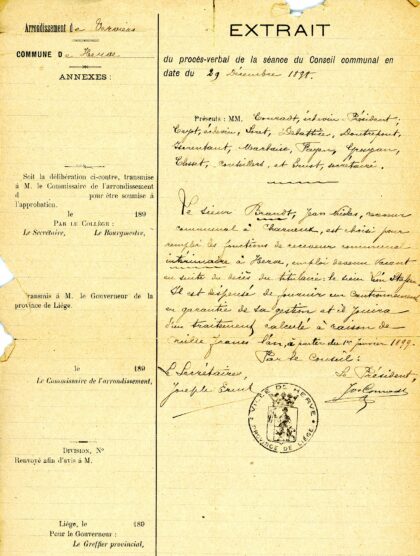 Arrondissement de Verviers
COMMUNE De Herve
ANNEXES :
Soit la délibération ci-contre, transmise
à M. le Commissaire de l'arrondissement
pour être soumise à
l'approbation.
le 189
PAR LE COLLÈGE :
Le Secrétaire, Le Bourgmestre,
Transmis à M. le Gouverneur de la
province de Liége.
189
Le Commissaire de l'arrondissement,
DIVISION, N°
Renvoyé afin d'avis à M.
Liége, le 189
Pour le Gouverneur :
Le Greffier provincial,
EXTRAIT
du procès-verbal de la séance du Conseil communal en
date du 29 Décembre 1898.
Présents : MM. Conradt, échevin Président,
échevin,
Closset, conseillers, et Ernst, secrétaire.
Le sieur Jean receveur
communal à Charneux, est choisi pour
remplir les fonctions de receveur communal
intérimaire à Herve, emploi devenu vacant
en suite du décès du titulaire : le sieur
Il est dispensé de fournir un cautionnement
en garantie de sa gestion et il jouira
d'un traitement calculé à raison de
mille francs l'an, à partir du 1er janvier 1899.
Par le Conseil :
Le Secrétaire, Le Président,
Joseph Ernst Jos Conradt
VILLE DE HERVE
PROVINCE DE LIÉGE